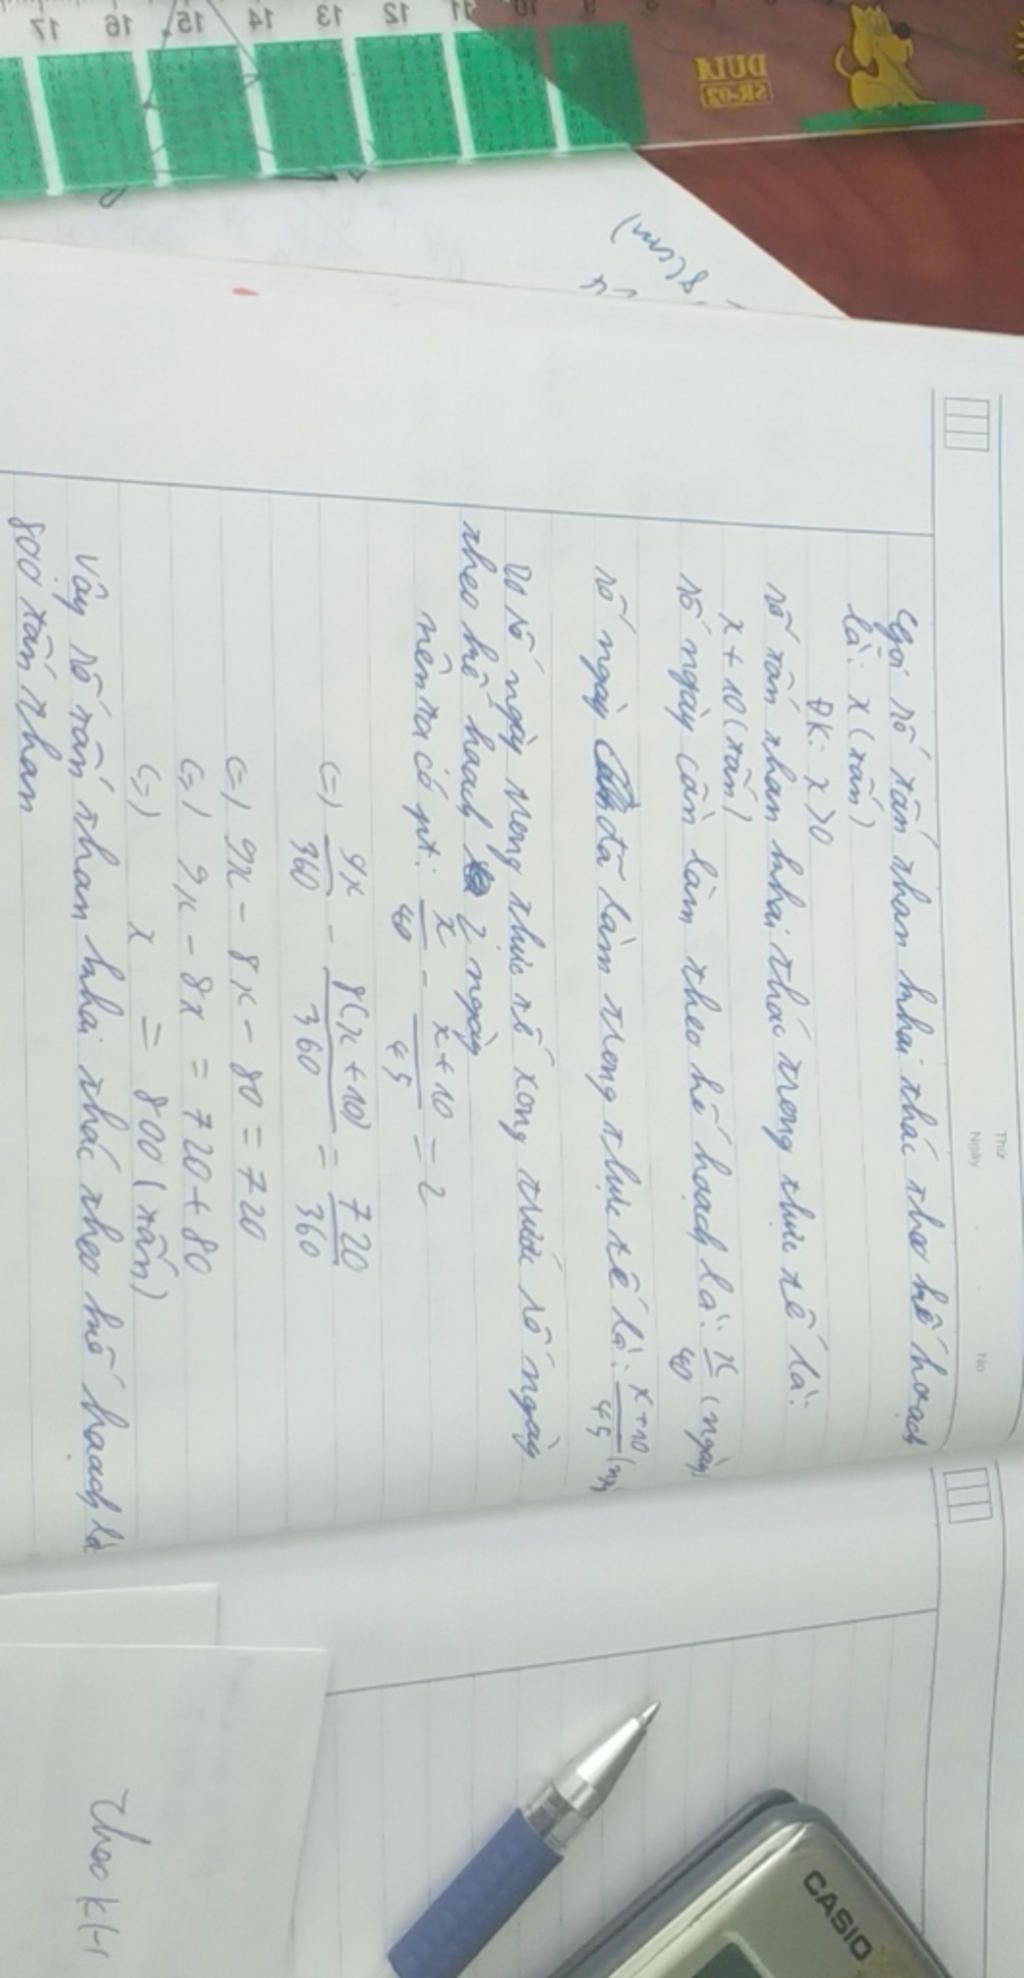 17 16 15 14 13 12 11 10 9 8
DULA
SR-02
8(cm)
Thứ
Ngày
No
Gọi số tấn than khai thác theo kế hoạch
là: x (tấn)
ĐK: x>0
số tấn than khai thác trong thực tế là:
x+10 (tấn)
số ngày cần làm theo kế hoạch là: x/40 (ngày)
số ngày đã làm trong thực tế là: x+10/45
Do số ngày trong thực tế xong trước số ngày
theo kế hoạch 2 ngày
nên ta có pt: x/40 - x+10/45 = 2
(=) 9x/360 - 8(x+10)/360 = 720/360
(=) 9x - 8x - 80 = 720
(=) 9x - 8x = 720+80
(=) x = 800 (tấn)
Vậy số tấn than khai thác theo kế hoạch là
800 tấn than
theo
CASIO